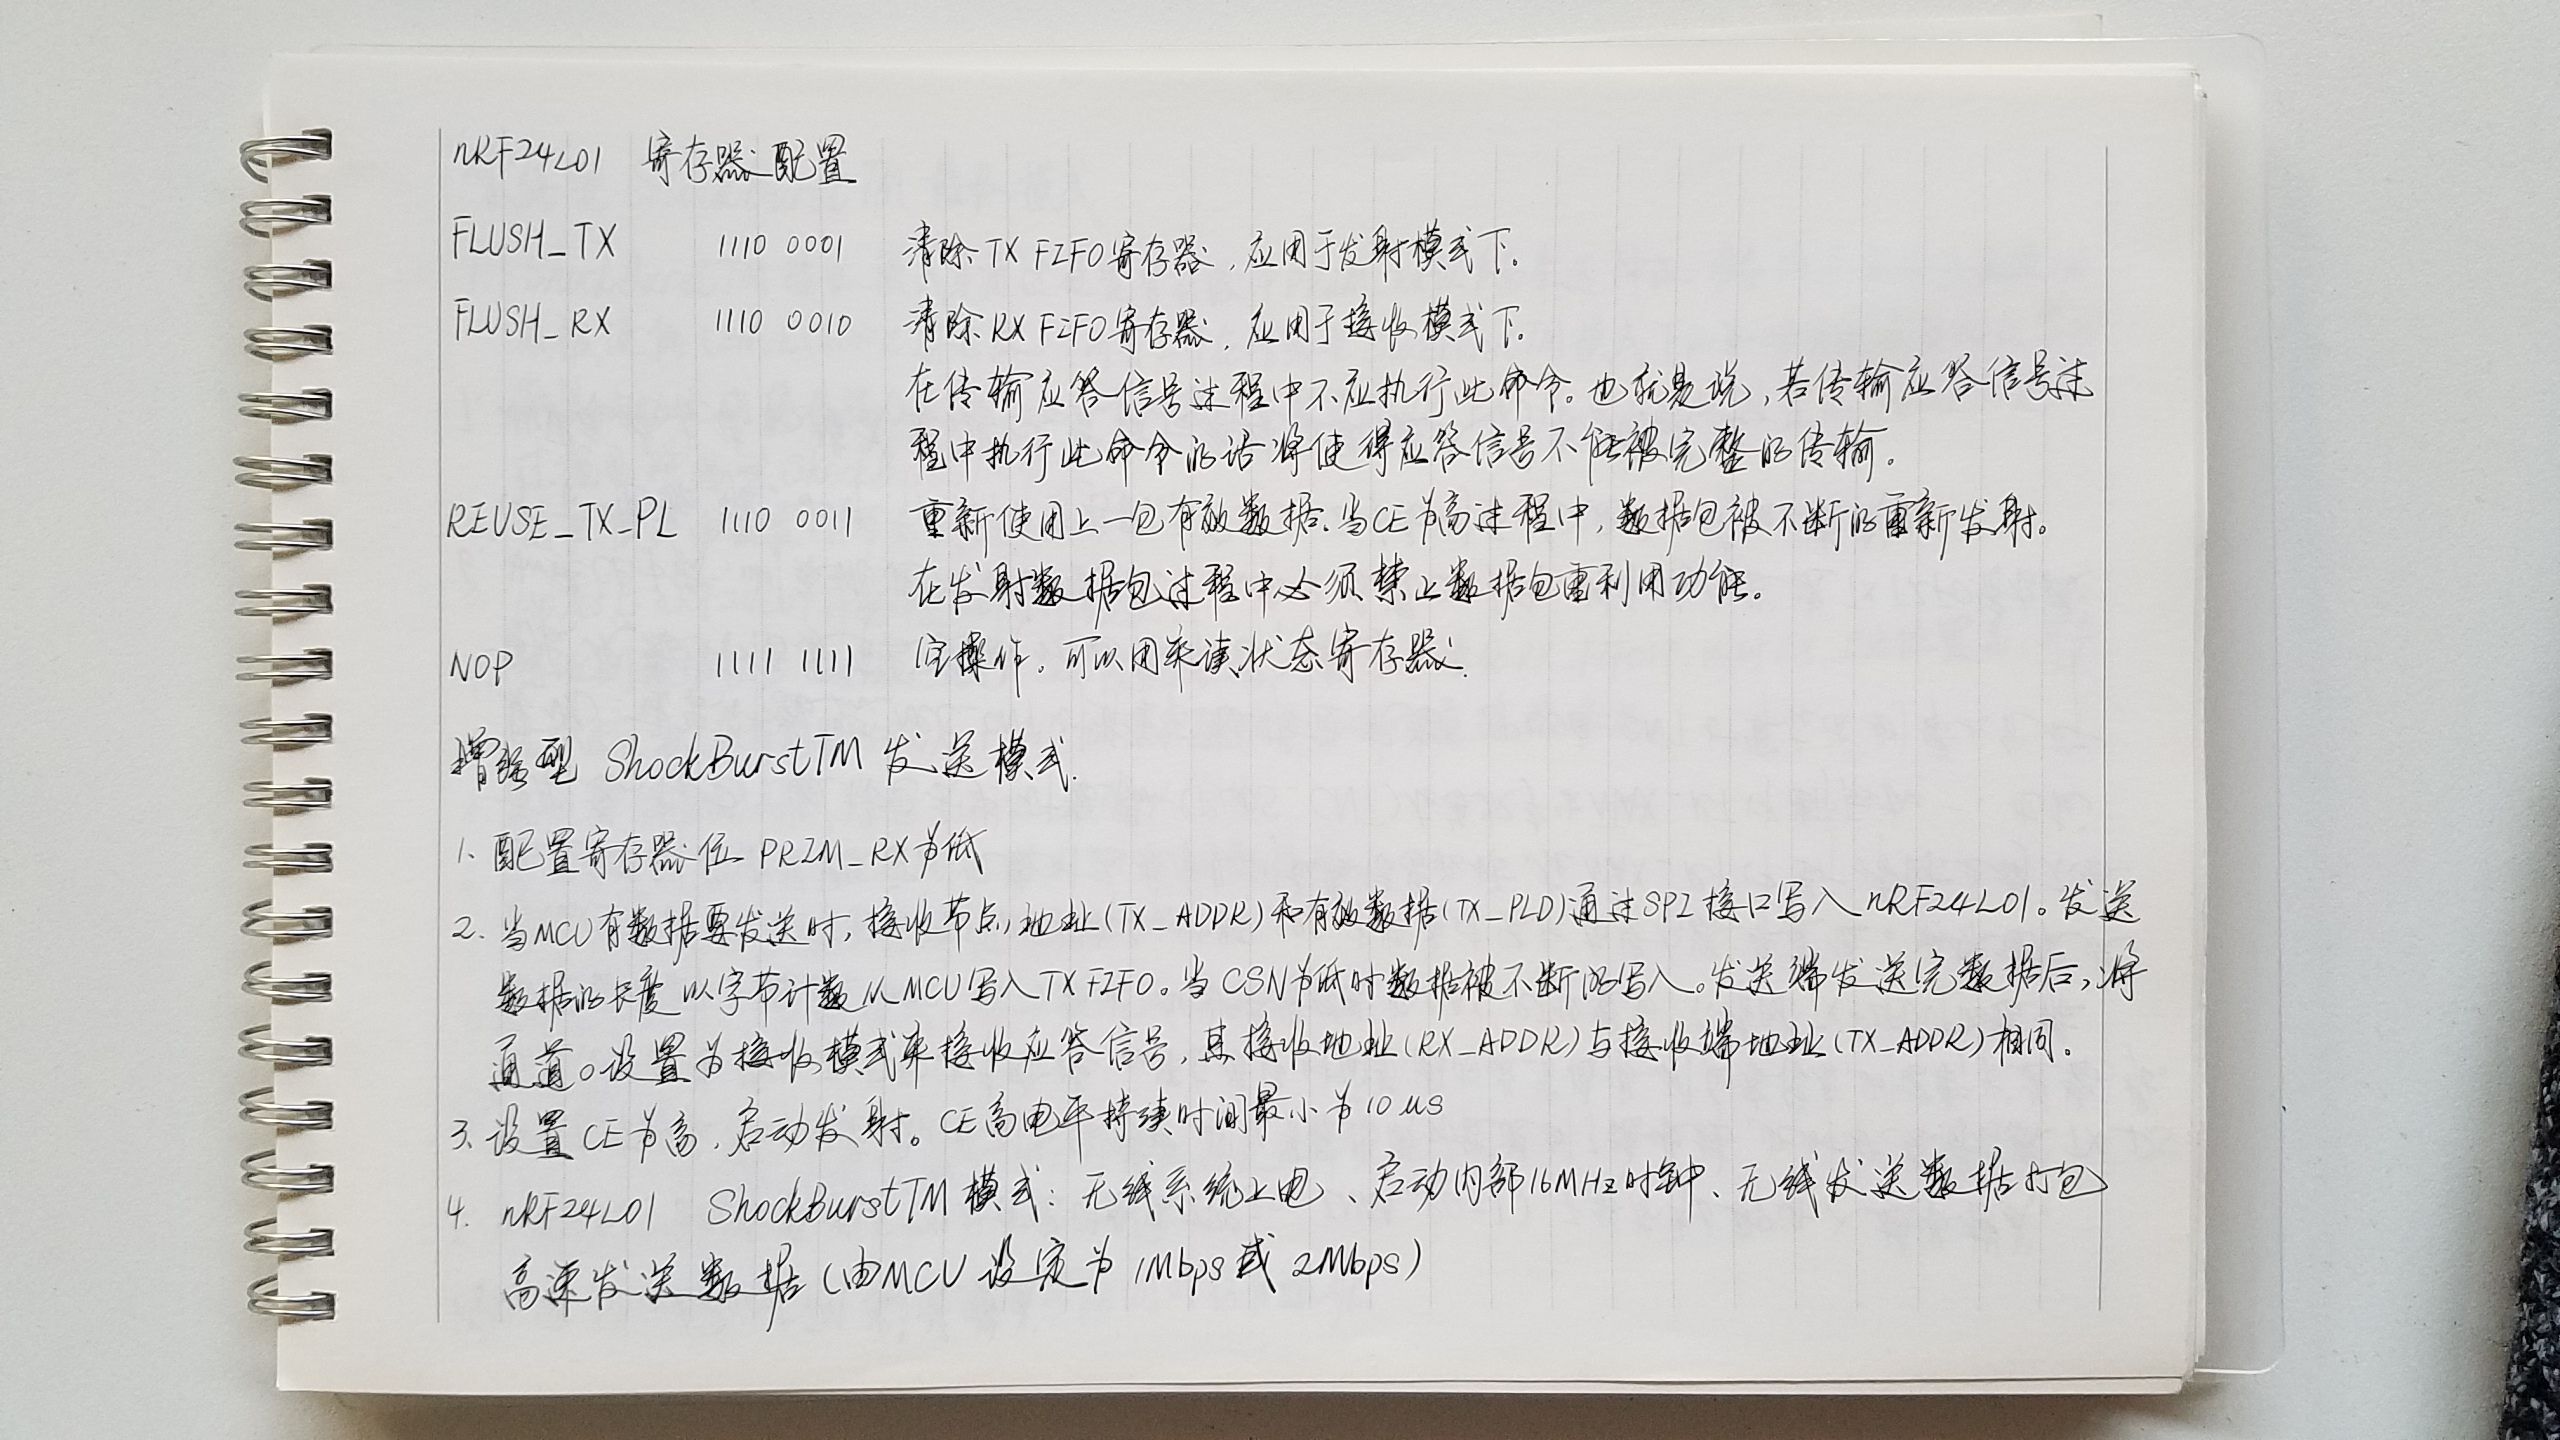 nRF24L01 寄存器配置
FLUSH_TX 1110 0001 清除TX FIFO寄存器，应用于发射模式下。
FLUSH_RX 1110 0010 清除RX FIFO寄存器，应用于接收模式下。
在传输应答信号过程中不应执行此命令。也就是说，若传输应答信号过
程中执行此命令的话将使得应答信号不能被完整的传输。
REUSE_TX_PL 1110 0011 重新使用上一包有效数据.当CE为高过程中，数据包被不断的重新发射。
在发射数据包过程中必须禁止数据包重利用功能。
NOP 1111 1111 空操作。可以用来读状态寄存器.
增强型 ShockBurstTM 发送模式.
1. 配置寄存器位 PRIM_RX为低
2. 当MCU有数据要发送时，接收节点地址(TX_ADDR)和有效数据(TX_PLD)通过SPI接口写入nRF24L01。发送
数据的长度以字节计数从MCU写入TX FIFO。当CSN为低时数据被不断的写入。发送端发送完数据后，将
通道0设置为接收模式来接收应答信号，其接收地址(RX_ADDR)与接收端地址(TX_ADDR)相同。
3. 设置CE为高，启动发射。CE高电平持续时间最小为10 us
4. nRF24L01 ShockBurstTM模式：无线系统上电、启动内部16MHz时钟、无线发送数据打包
高速发送数据(由MCU设定为 1Mbps或 2Mbps)